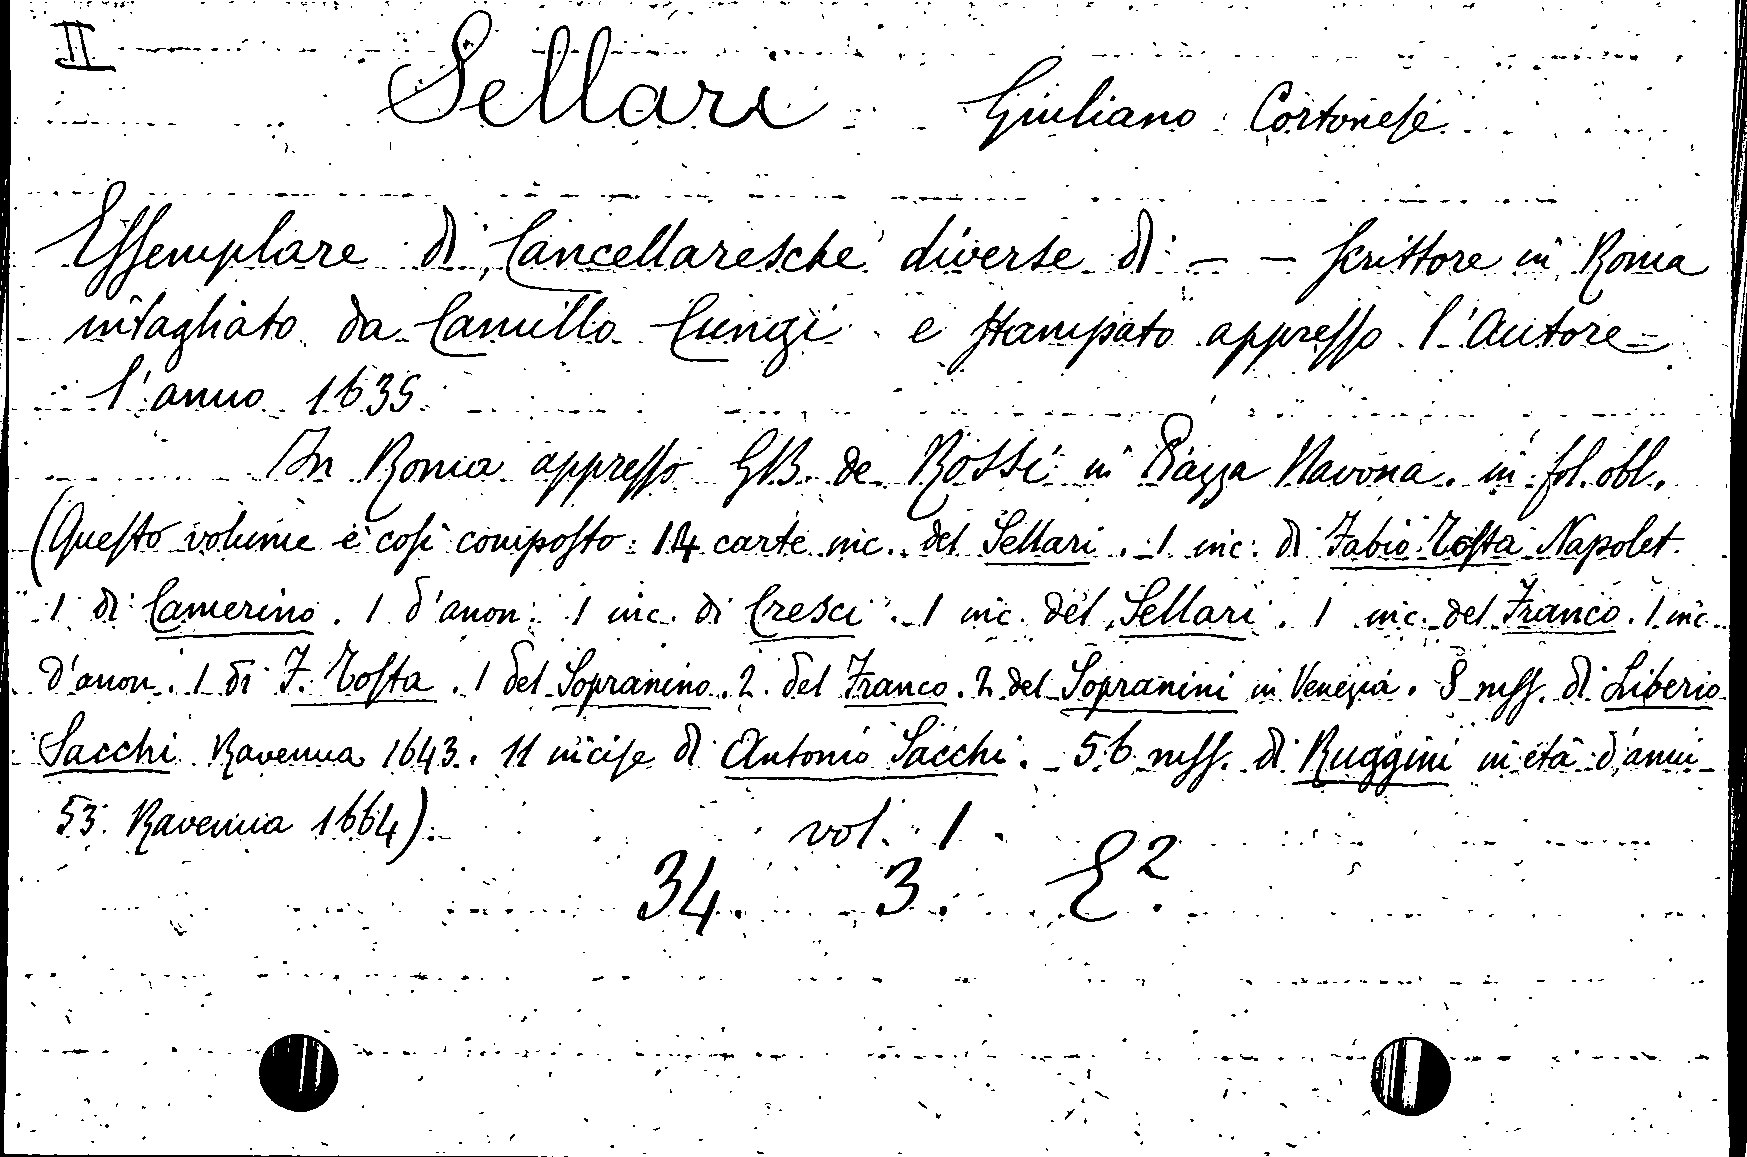 II
Sellari Giuliano Cortonese
Essemplare di Cancellaresche diverse di — — scrittore in Roma
intagliato da Camillo Cungi e stampato appresso l'Autore
l'anno 1635
In Roma appresso GB. de Rossi in Piazza Navona. in fol. obl.
(Questo volume è così composto: 14 carte inc. del Sellari. 1 inc. di Fabio Tosta Napolet.
1 di Camerino. 1 d'anon. 1 inc. di Cresci. 1 inc. del Sellari. 1 inc. del Franco. 1 inc
d'anon. 1 di F. Tosta. 1 del Sopranino. 2. del Franco. 2 del Sopranini in Venezia. 8 mss. di Liberio
Sacchi Ravenna 1643. 11 incise di Antonio Sacchi. 56 mss. di Ruggini in età d'anni
53. Ravenna 1664).
vol. 1
34. 3. E².